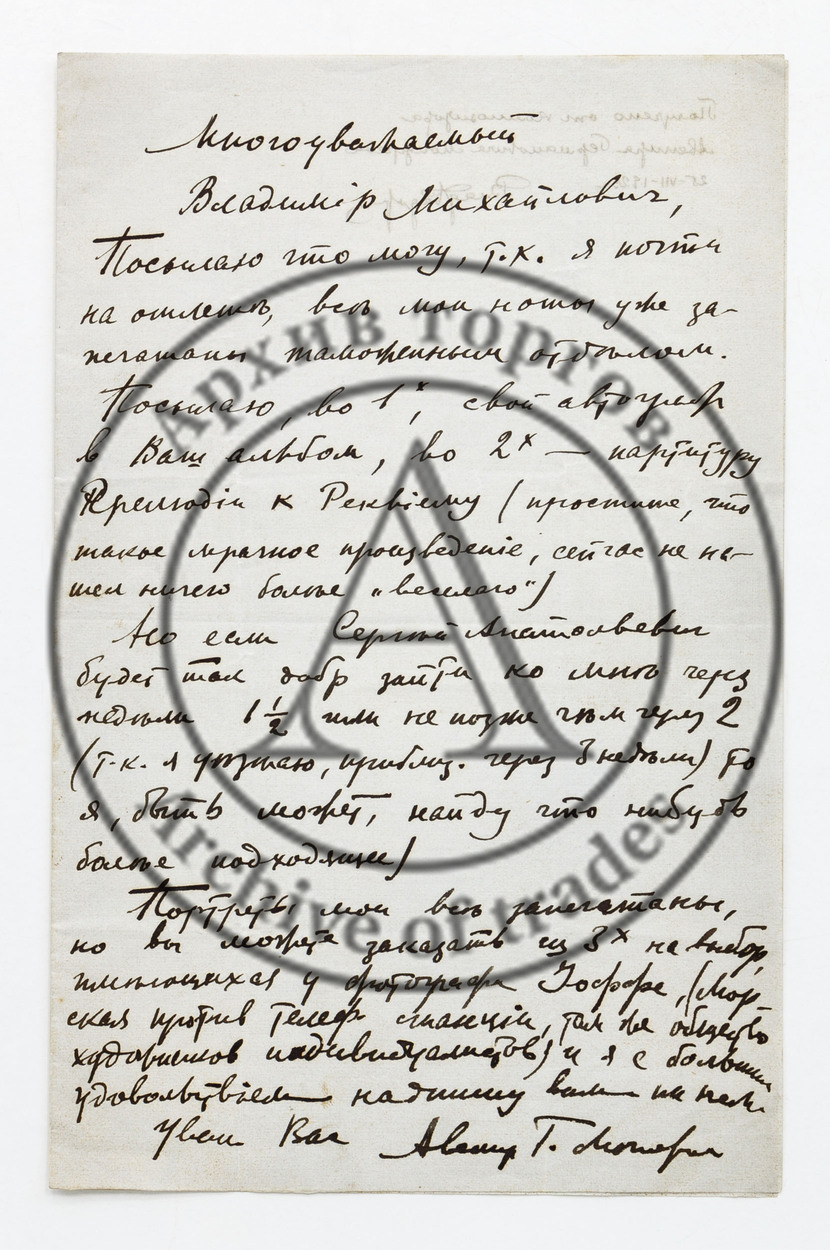 Многоуважаемый
Владимір Михайлович,
Посылаю что могу, т.к. я почти
на отлетѣ, всѣ мои ноты уже за-
печатаны таможенным отдѣлом.
Посылаю, во 1х, свой автограф
в Ваш альбом, во 2х — партитуру
Прелюдіи к Реквіему (простите, что
такое мрачное произведеніе, сейчас не на-
шел ничего болѣе „веселаго")
Но если Сергѣй Анатольевич
будет так добр зайти ко мнѣ через
недѣли 1 1/2 или не позже чѣм через 2
(т.к. я уѣзжаю, приблиз. через 3 недѣли) то
я, быть может, найду что нибудь
болѣе подходящее)
Портреты мои всѣ запечатаны,
но вы можете заказать из 3х на выбор,
имѣющихся у фотографа Іоффе, (Мор-
ская против Телеф. станціи, там же общество
художников индивидуалистов) и я с большим
удовольствіем надпишу вам на нем.
Уваж. Вас Авенир Г. Монфред
Архив торгов
Archive of trades